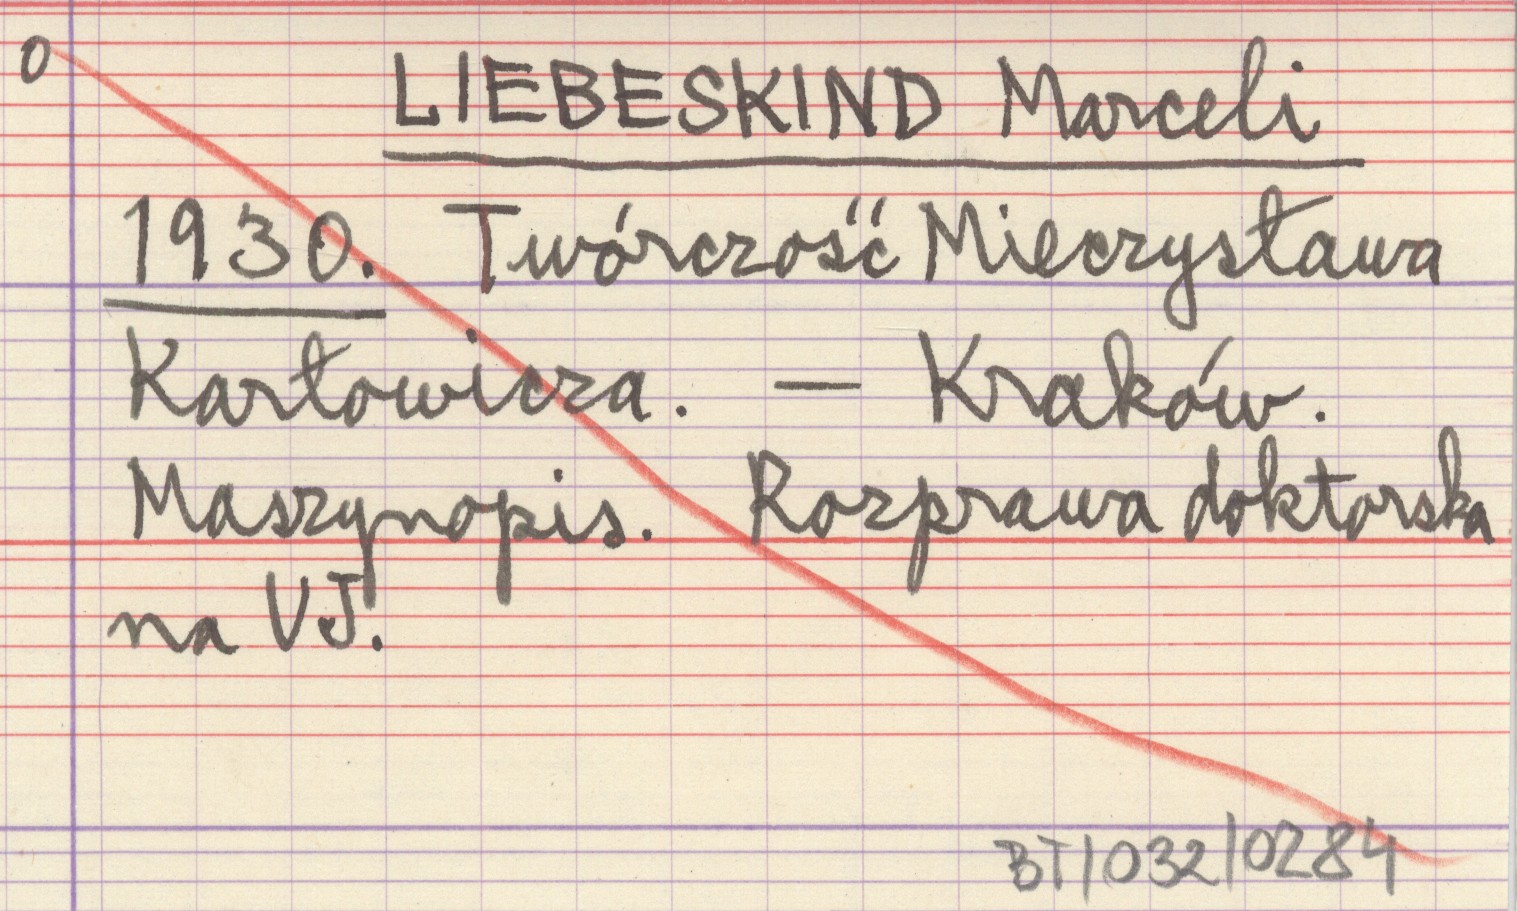 0
LIEBESKIND Marceli
1930. Twórczość Mieczysława
Karłowicza. — Kraków.
Maszynopis. Rozprawa doktorska
na UJ.
BT/032/0284